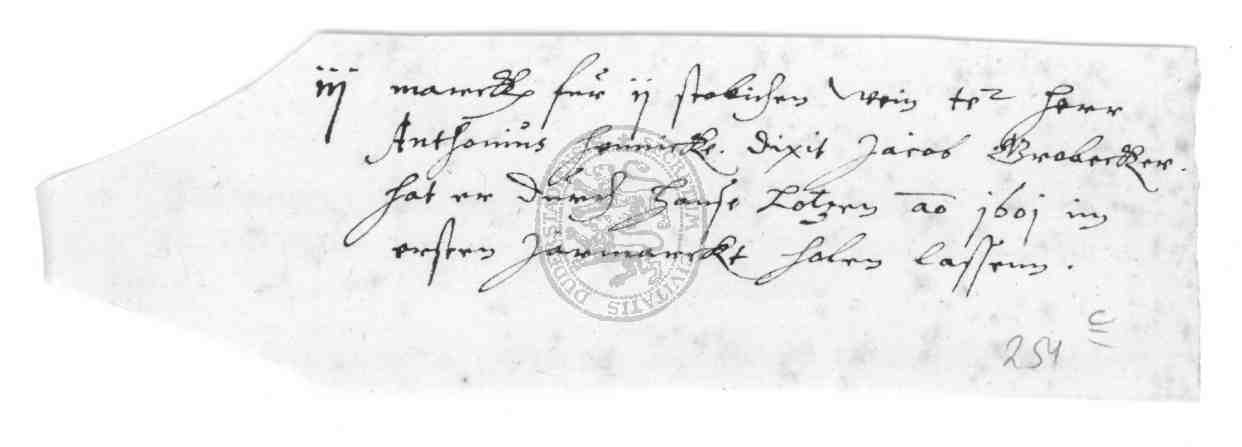 iij marck für ij stobichen wein te² herr
Anthonius Hennicke. dixit Jacob Grobecker.
hat er durch Hanse Lotzen ao 1601 im
ersten Jarmarckt holen lassenn.
c
254